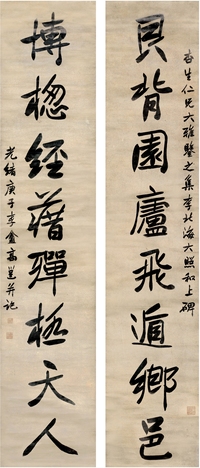 杏生仁兄大雅鑒之集李北海大照和上碑
貝背園廬飛遁鄉邑
博揔經藉殫極天人
光緒庚子李盦高邕并記